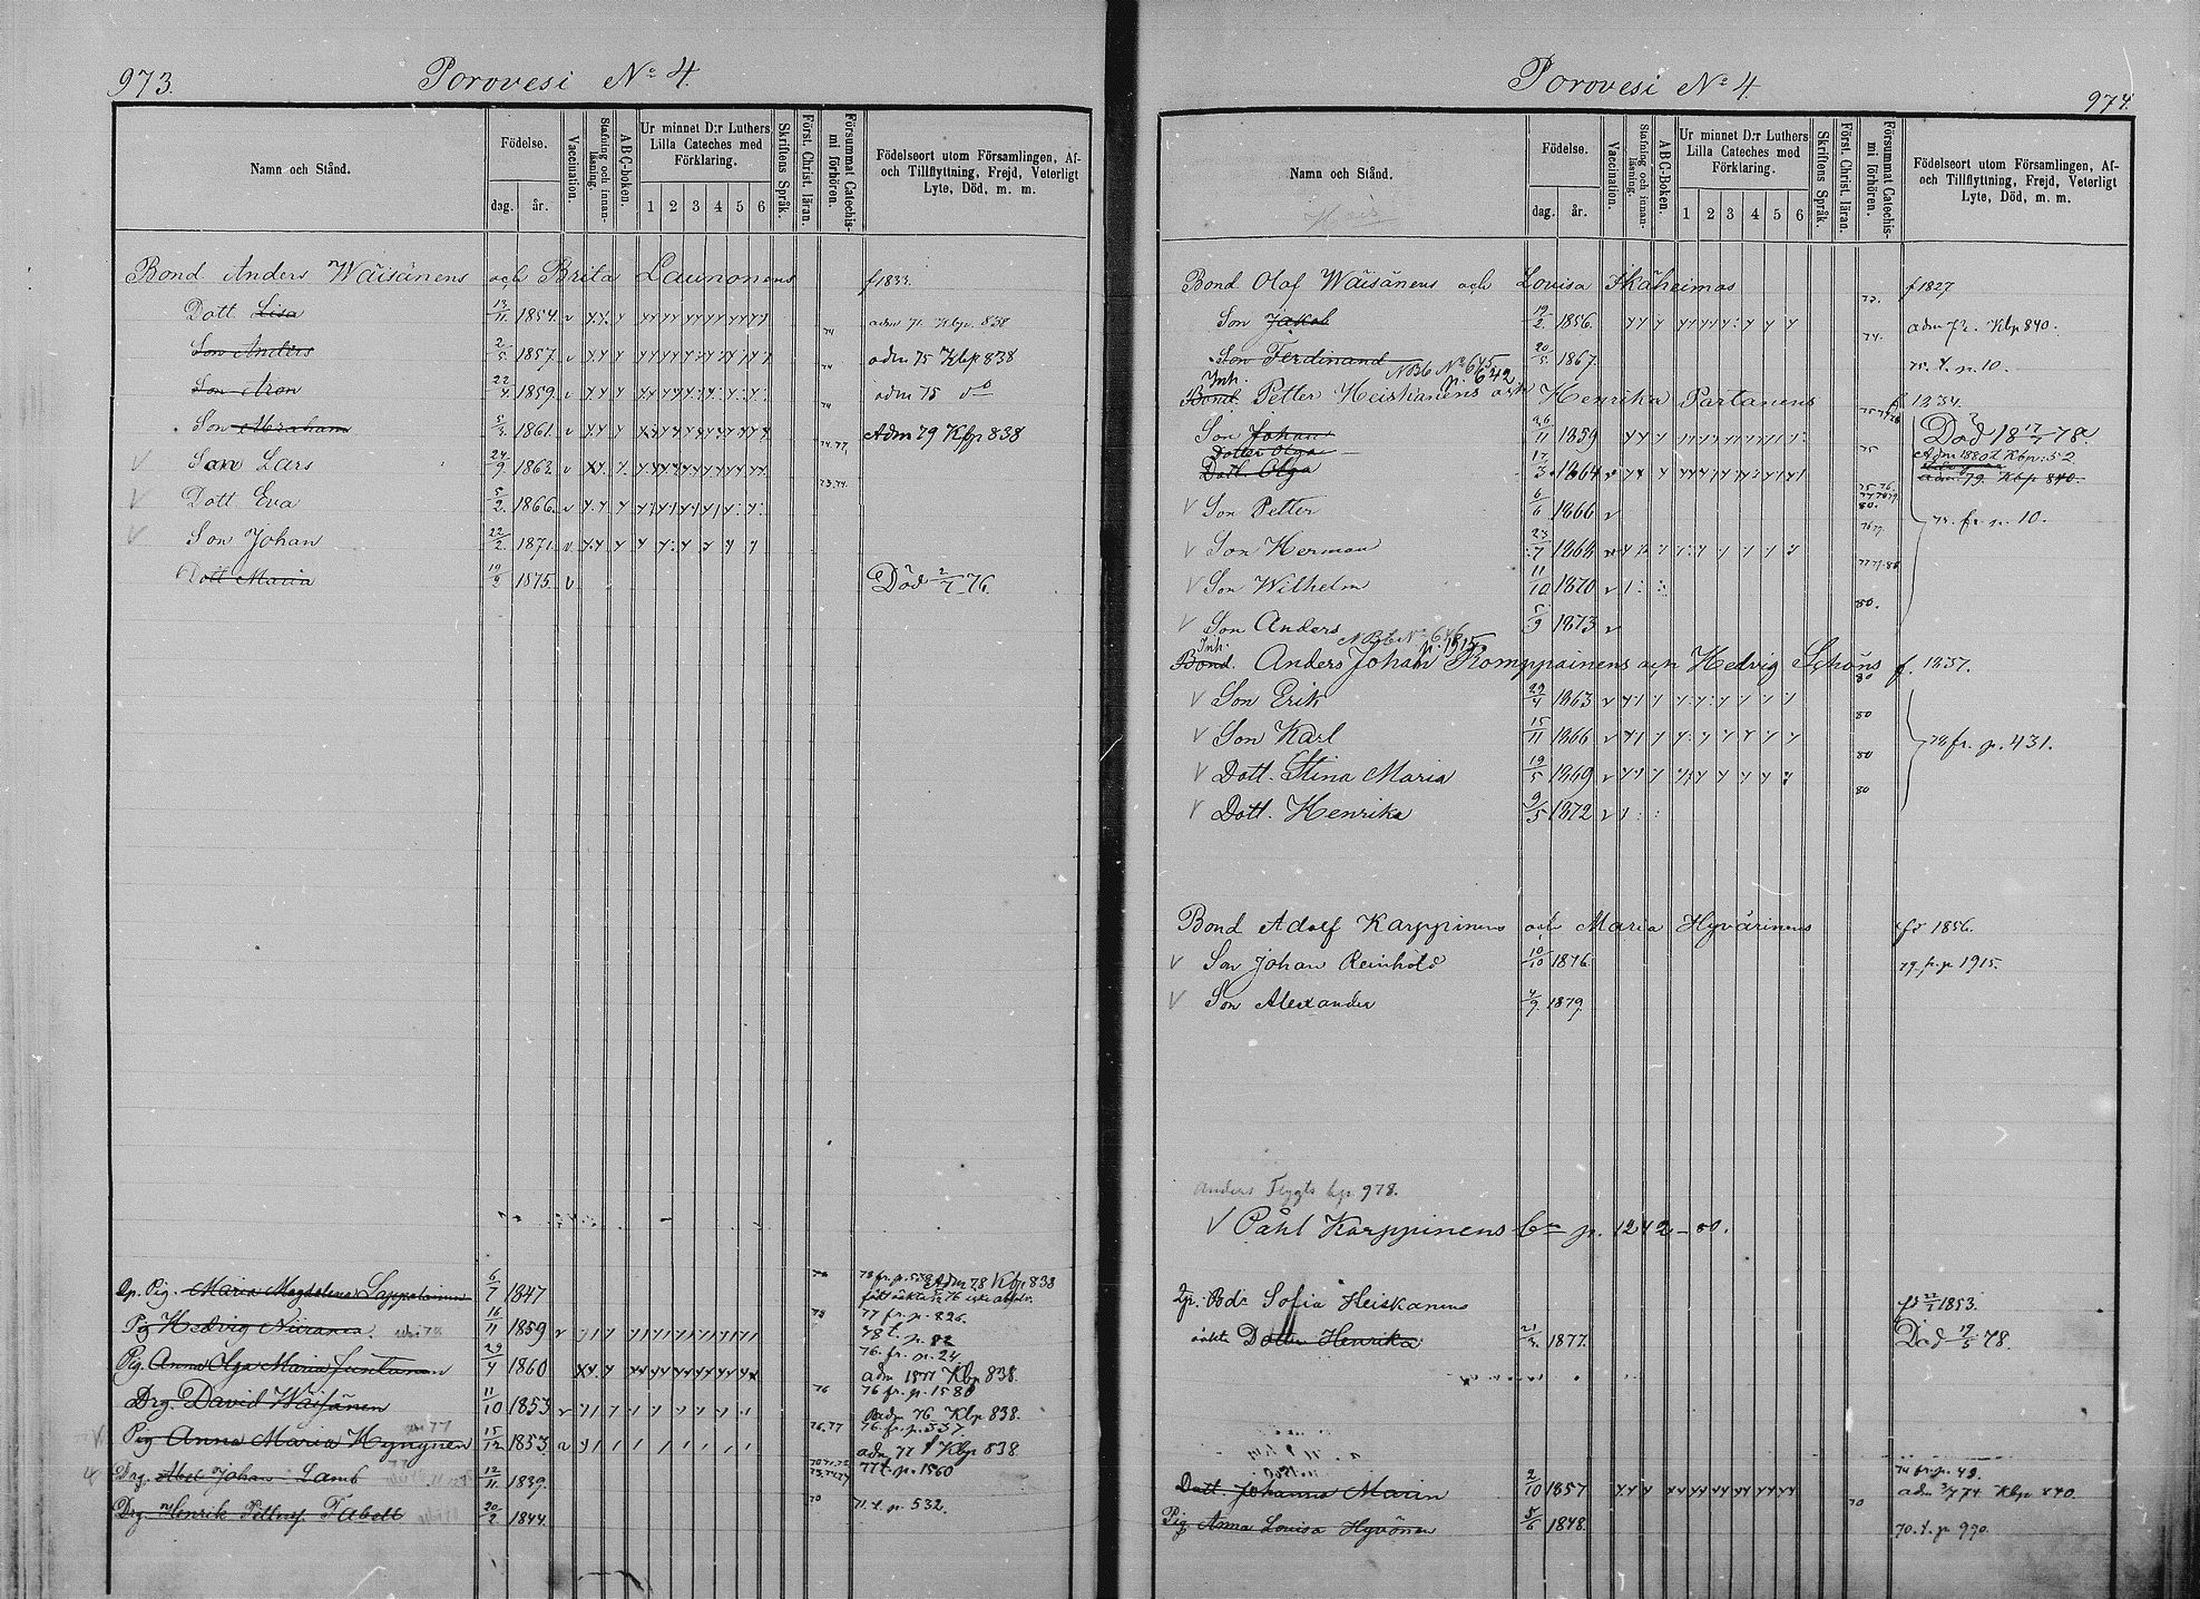 973.
Porovesi No 4.
Namn och Stånd.
Födelse.
dag.
år.
Vaccination.
Stafning och innan-läsning.
ABC-boken.
Ur minnet D:r Luthers Lilla Cateches med Förklaring.
1 2 3 4 5 6
Skriftens Språk.
Först. Christ. läran.
Försummat Catechis-mi förhören.
Födelseort utom Församlingen, Af-
och Tillflyttning, Frejd, Veterligt
Lyte, Död, m. m.
Bond Anders Wäisänens och Brita Launonens f 1833.
Dott. Lisa 13/11 1854. v 74 adm 71. Kbp. 838
Son Anders 2/5 1857. v 74 adm 75 Kbp 838
Son Aron 22/4 1859. v 74 adm 75 do
Son Abraham 5/3 1861. v 74.77. Adm 79 Kbp 838
Son Lars 24/9 1863. v 73.74.
Dott Eva 5/2 1866. v
Son Johan 22/2 1871. v
Dott Maria 19/3 1875. v Död 2/7 76.
Pig. Maria Magdalena Lappalainen 6/7 1847 78 fr. p. 578 Adm 78 Kbp 838
Pig Hedvig Niiranen 16/11 1859 v 78 77 fr. p. 826.
78 t. p. 82
Pig. Anna Olga Maria Juntunen 29/4 1860 76. fr. p. 24
adm 1877 Kbp 838.
Drg. David Wäisänen 11/10 1853 v 76 76 fr. p. 1580
Adm 76 Kbp 838.
Pig Anna Maria Hynynen 15/12 1853. v 76.77 76. fr. p. 537.
adm 77 Kbp 838
Drg. Abel Johan Lamb 12/11 1839. 77 t. p. 1560
Drg. Henrik Pettersf. Tabell 20/2 1844. 70 71. t. p. 532.
Porovesi No 4.
974.
Namn och Stånd.
Födelse.
dag.
år.
Vaccination.
Stafning och innan-läsning.
ABC-Boken.
Ur minnet D:r Luthers Lilla Cateches med Förklaring.
1 2 3 4 5 6
Skriftens Språk.
Först. Christ. läran.
Försummat Catechis-mi förhören.
Födelseort utom Församlingen, Af-
och Tillflyttning, Frejd, Veterligt
Lyte, Död, m. m.
Bond Olof Wäisänens och Lovisa Ikäheimos 73. f 1827
Son Jakob 19/2 1856. 74. adm 72. Kbp 840.
Son Ferdinand 20/5 1867. 75. t. p. 10.
No 645
p. 642
Inh.
Bond. Petter Heiskanens och Henrika Partanens f. 1834.
Son Johan 26/11 1859 75 Död 18 17/7 78.
Dotter Olga Adm 1880 Kbp. 52
Dott. Olga 17/3 1864 v adm 79. Kbp 840.
Son Petter 6/6 1866 v 75. fr. p. 10.
Son Herman 23/7 1868 v
Son Wilhelm 11/10 1870 v
Son Anders 5/9 1873 v
p. 1915.
Inh.
Bond. Anders Johan Komppainens och Hedvig Schöns f. 1837.
Son Erik 29/4 1863 v 80
Son Karl 15/11 1866 v 80 78 fr. p. 431.
Dott. Stina Maria 19/5 1869 v 80
Dott. Henrika 9/5 1872 v
Bond Adolf Karppinens och Maria Hyvärinens fr 1856.
Son Johan Reinhold 10/10 1876 79. fr. p. 1915.
Son Alexander 4/9 1879.
Anders Flygts kp. 978.
V Påhl Karppinens p. 1242 - 80.
Sofia Heiskanens 22/1 1853.
oäkta Dotter Henrika 21/2. 1877. Död 19/5 78.
Dott. Johanna Maria 2/10 1857 74 fr. p. 49.
adm 74 Kbp 840.
Pig Anna Lovisa Hyvönen 5/6 1848. 70 70. t. p 970.